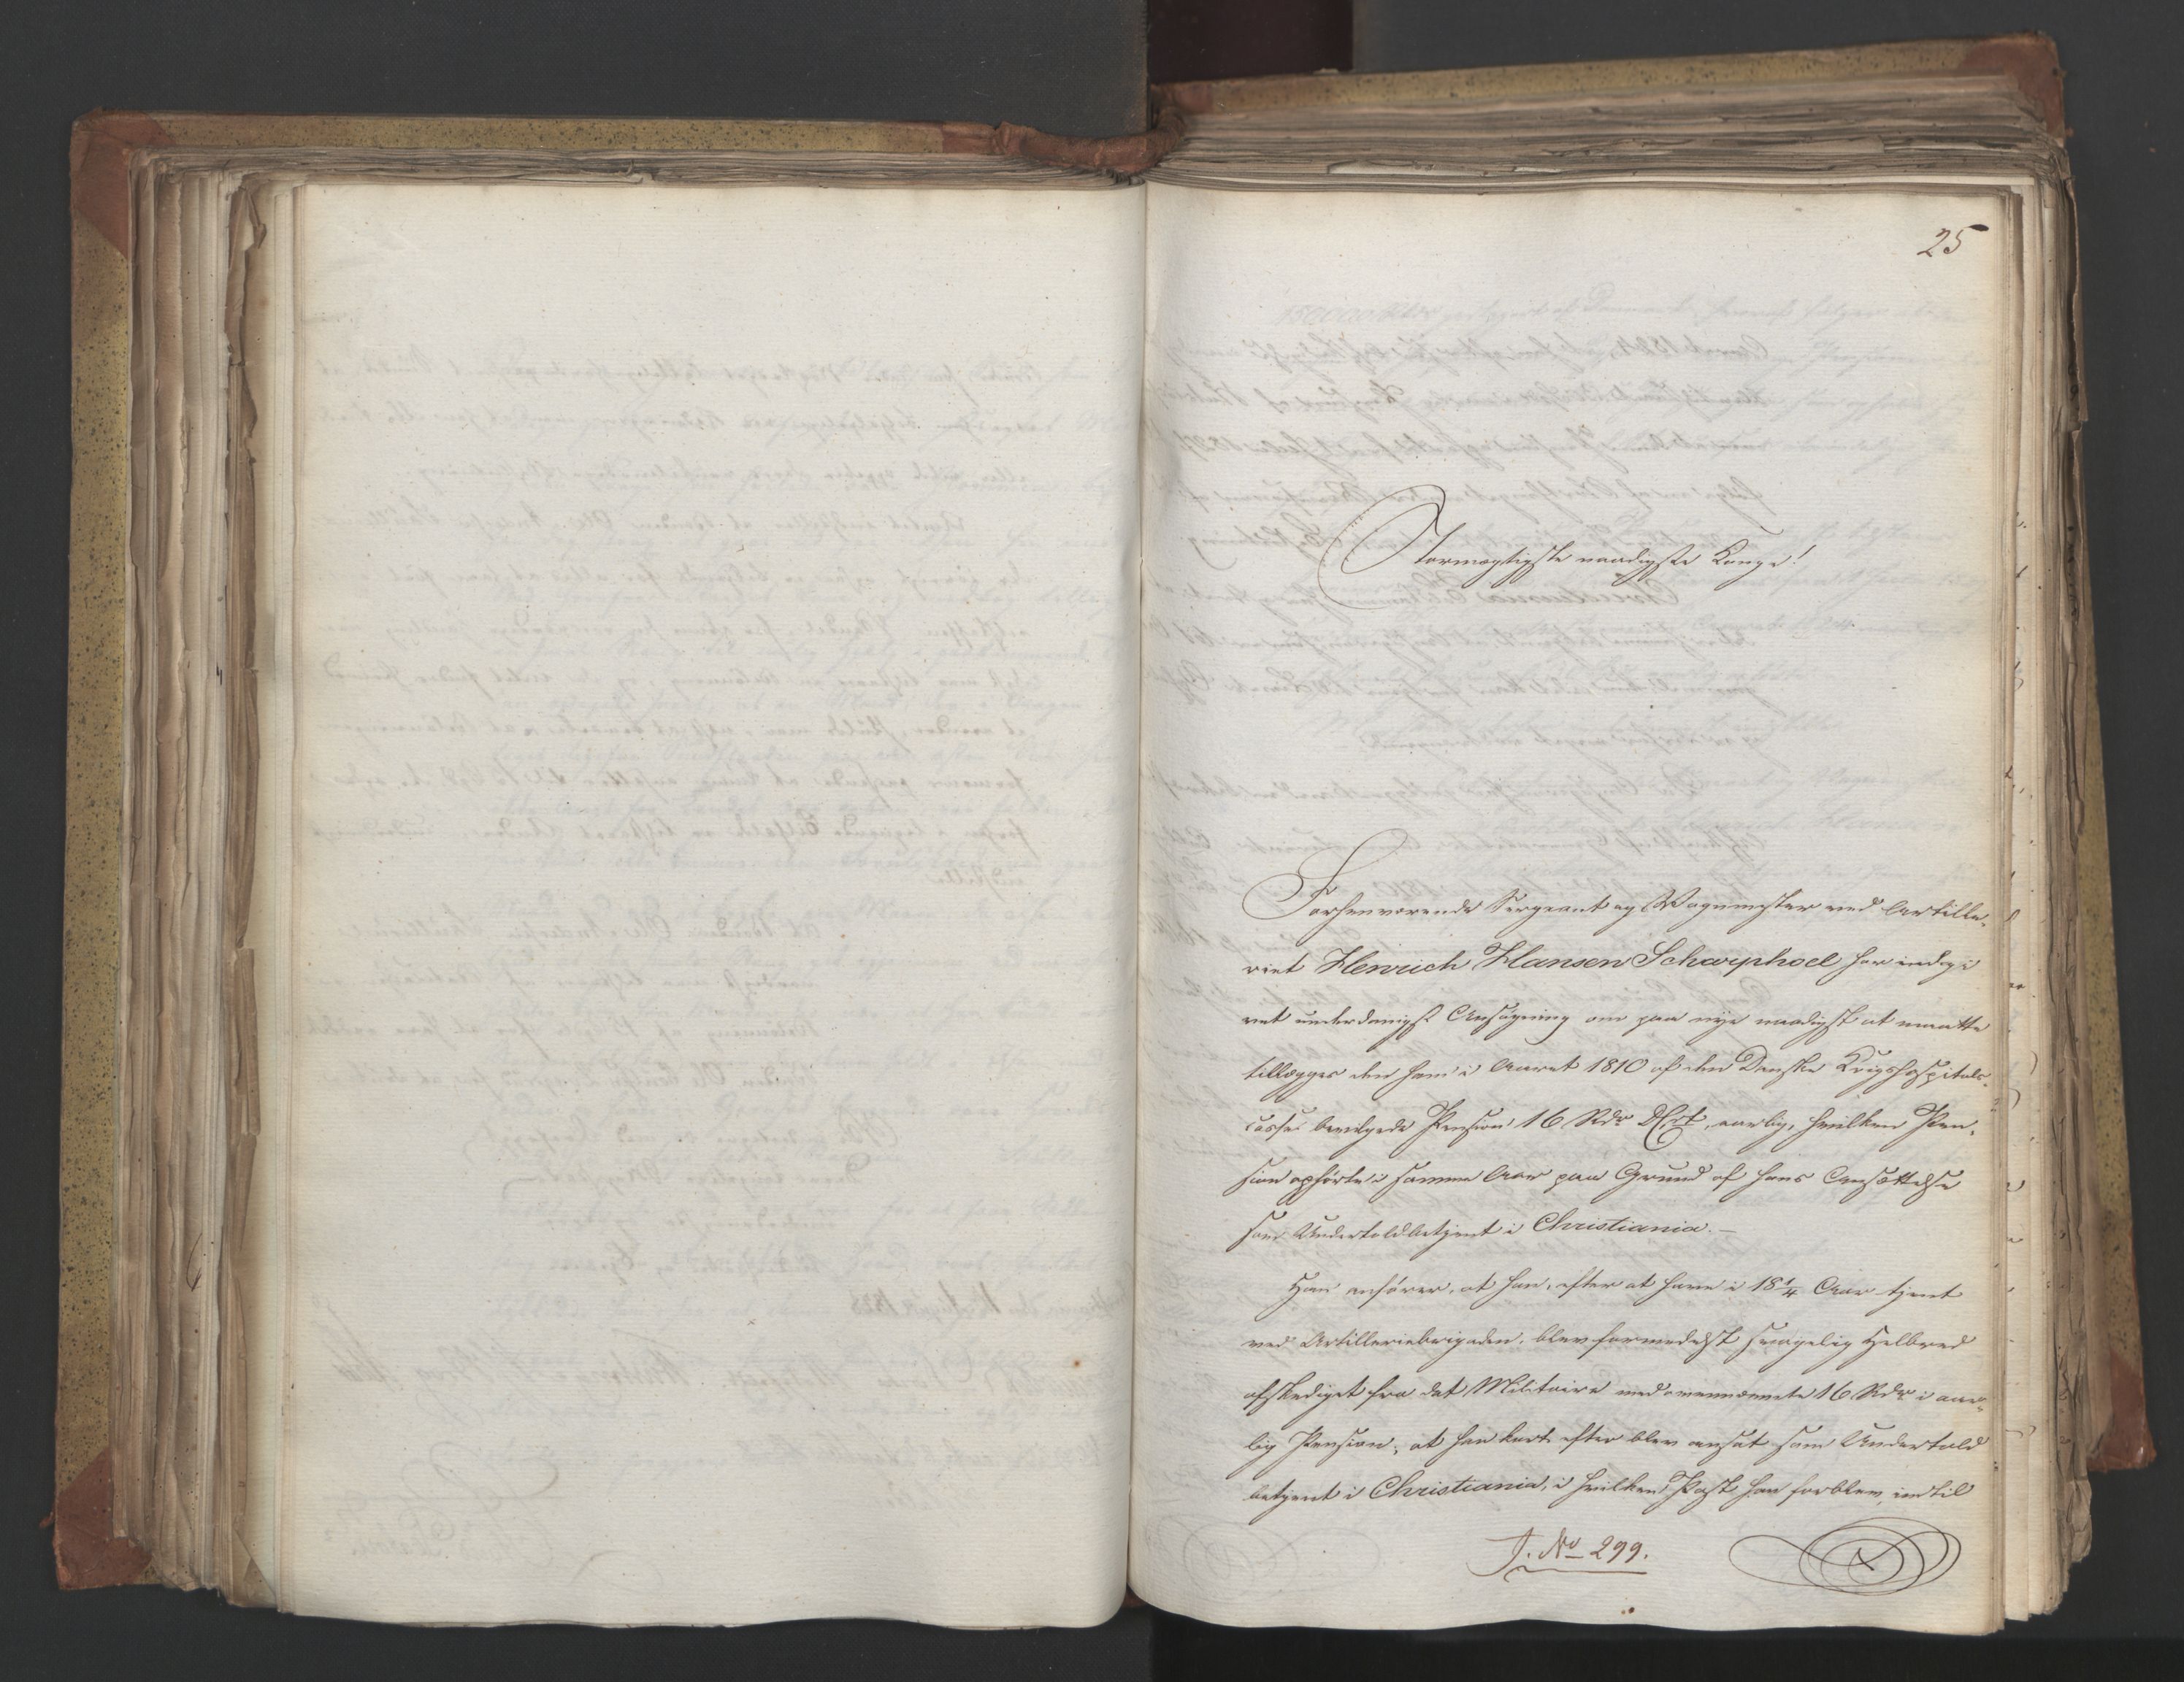 25
Stormægtigste naadigste Konge!
Forhenværende Sergeant og Vognmester ved Artille-
riet Henrich Hansen Scharphoel har indgi-
vet underdanigst Ansøgning om paa nye naadigst at maatte
tillægges den ham i Aaret 1810 af den Danske Krigshospitals-
casse bevilgede Pension 16 Rdr DCrt. aarlig, hvilken Pen-
sion ophørte i samme Aar paa Grund af hans Ansættelse
som Undertoldbetjent i Christiania.—
Han anfører, at han, efter at have i 18 1/4 Aar tjent
ved Artilleriebrigaden, blev formedelst svagelig Helbred
afskediget fra det Militaire med ovennævnte 16 Rdr i aar-
lig Pension; at han kort efter blev ansat som Undertold
betjent i Christiania, i hvilken Post han forblev indtil
J. No 299.